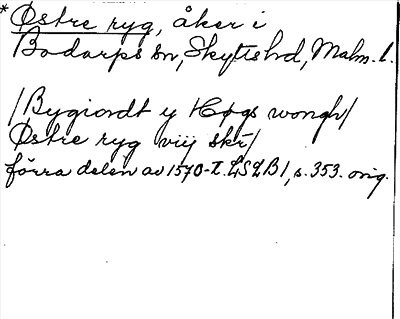 * Östre ryg, åker i
Bodarps sn, Skytts hd, Malm. l.
/Bygiordt y Høgs wongh/
Østre ryg viij skr/
förra delen av 1570-t. LSLB 1, s. 353. orig.